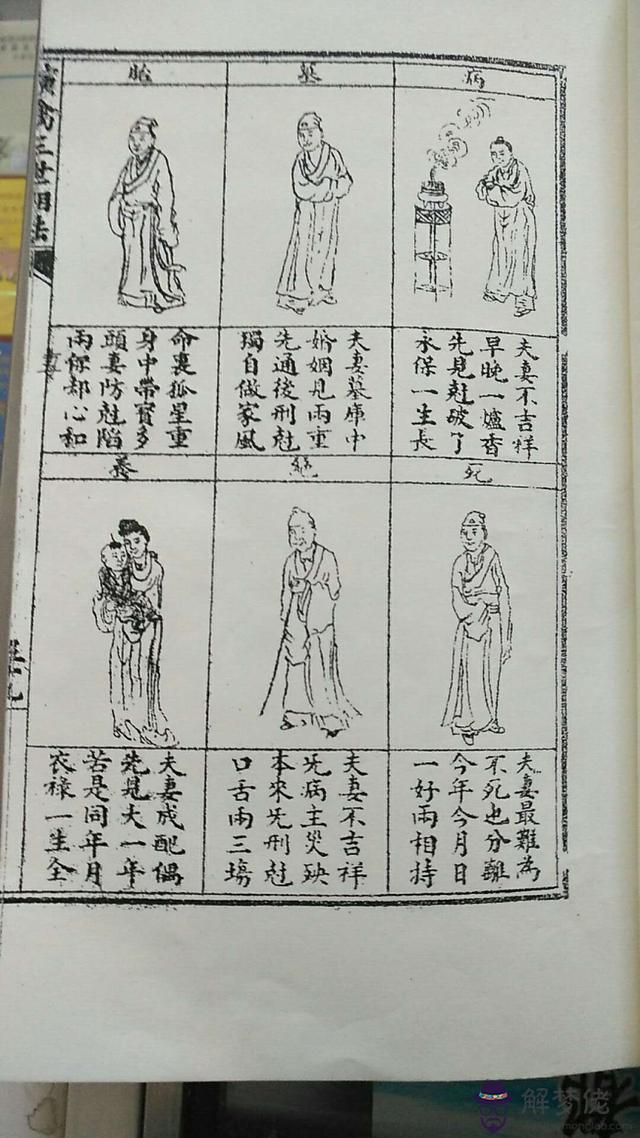 演禽三世相法
病
夫妻不吉祥
早晚一爐香
先見尅破了
永保一生長
墓
夫妻墓庫中
婚姻見兩重
先通後刑尅
獨自做家風
胎
命裏孤星重
身中帶寶多
頭妻防尅陷
兩保却心和
死
夫妻最難為
不死也分離
今年今月日
一好兩相持
絕
夫妻不吉祥
旡病主災殃
本來旡刑尅
口舌兩三塲
養
夫妻成配偶
先見大一年
苦是同年月
衣祿一生全
解梦佬